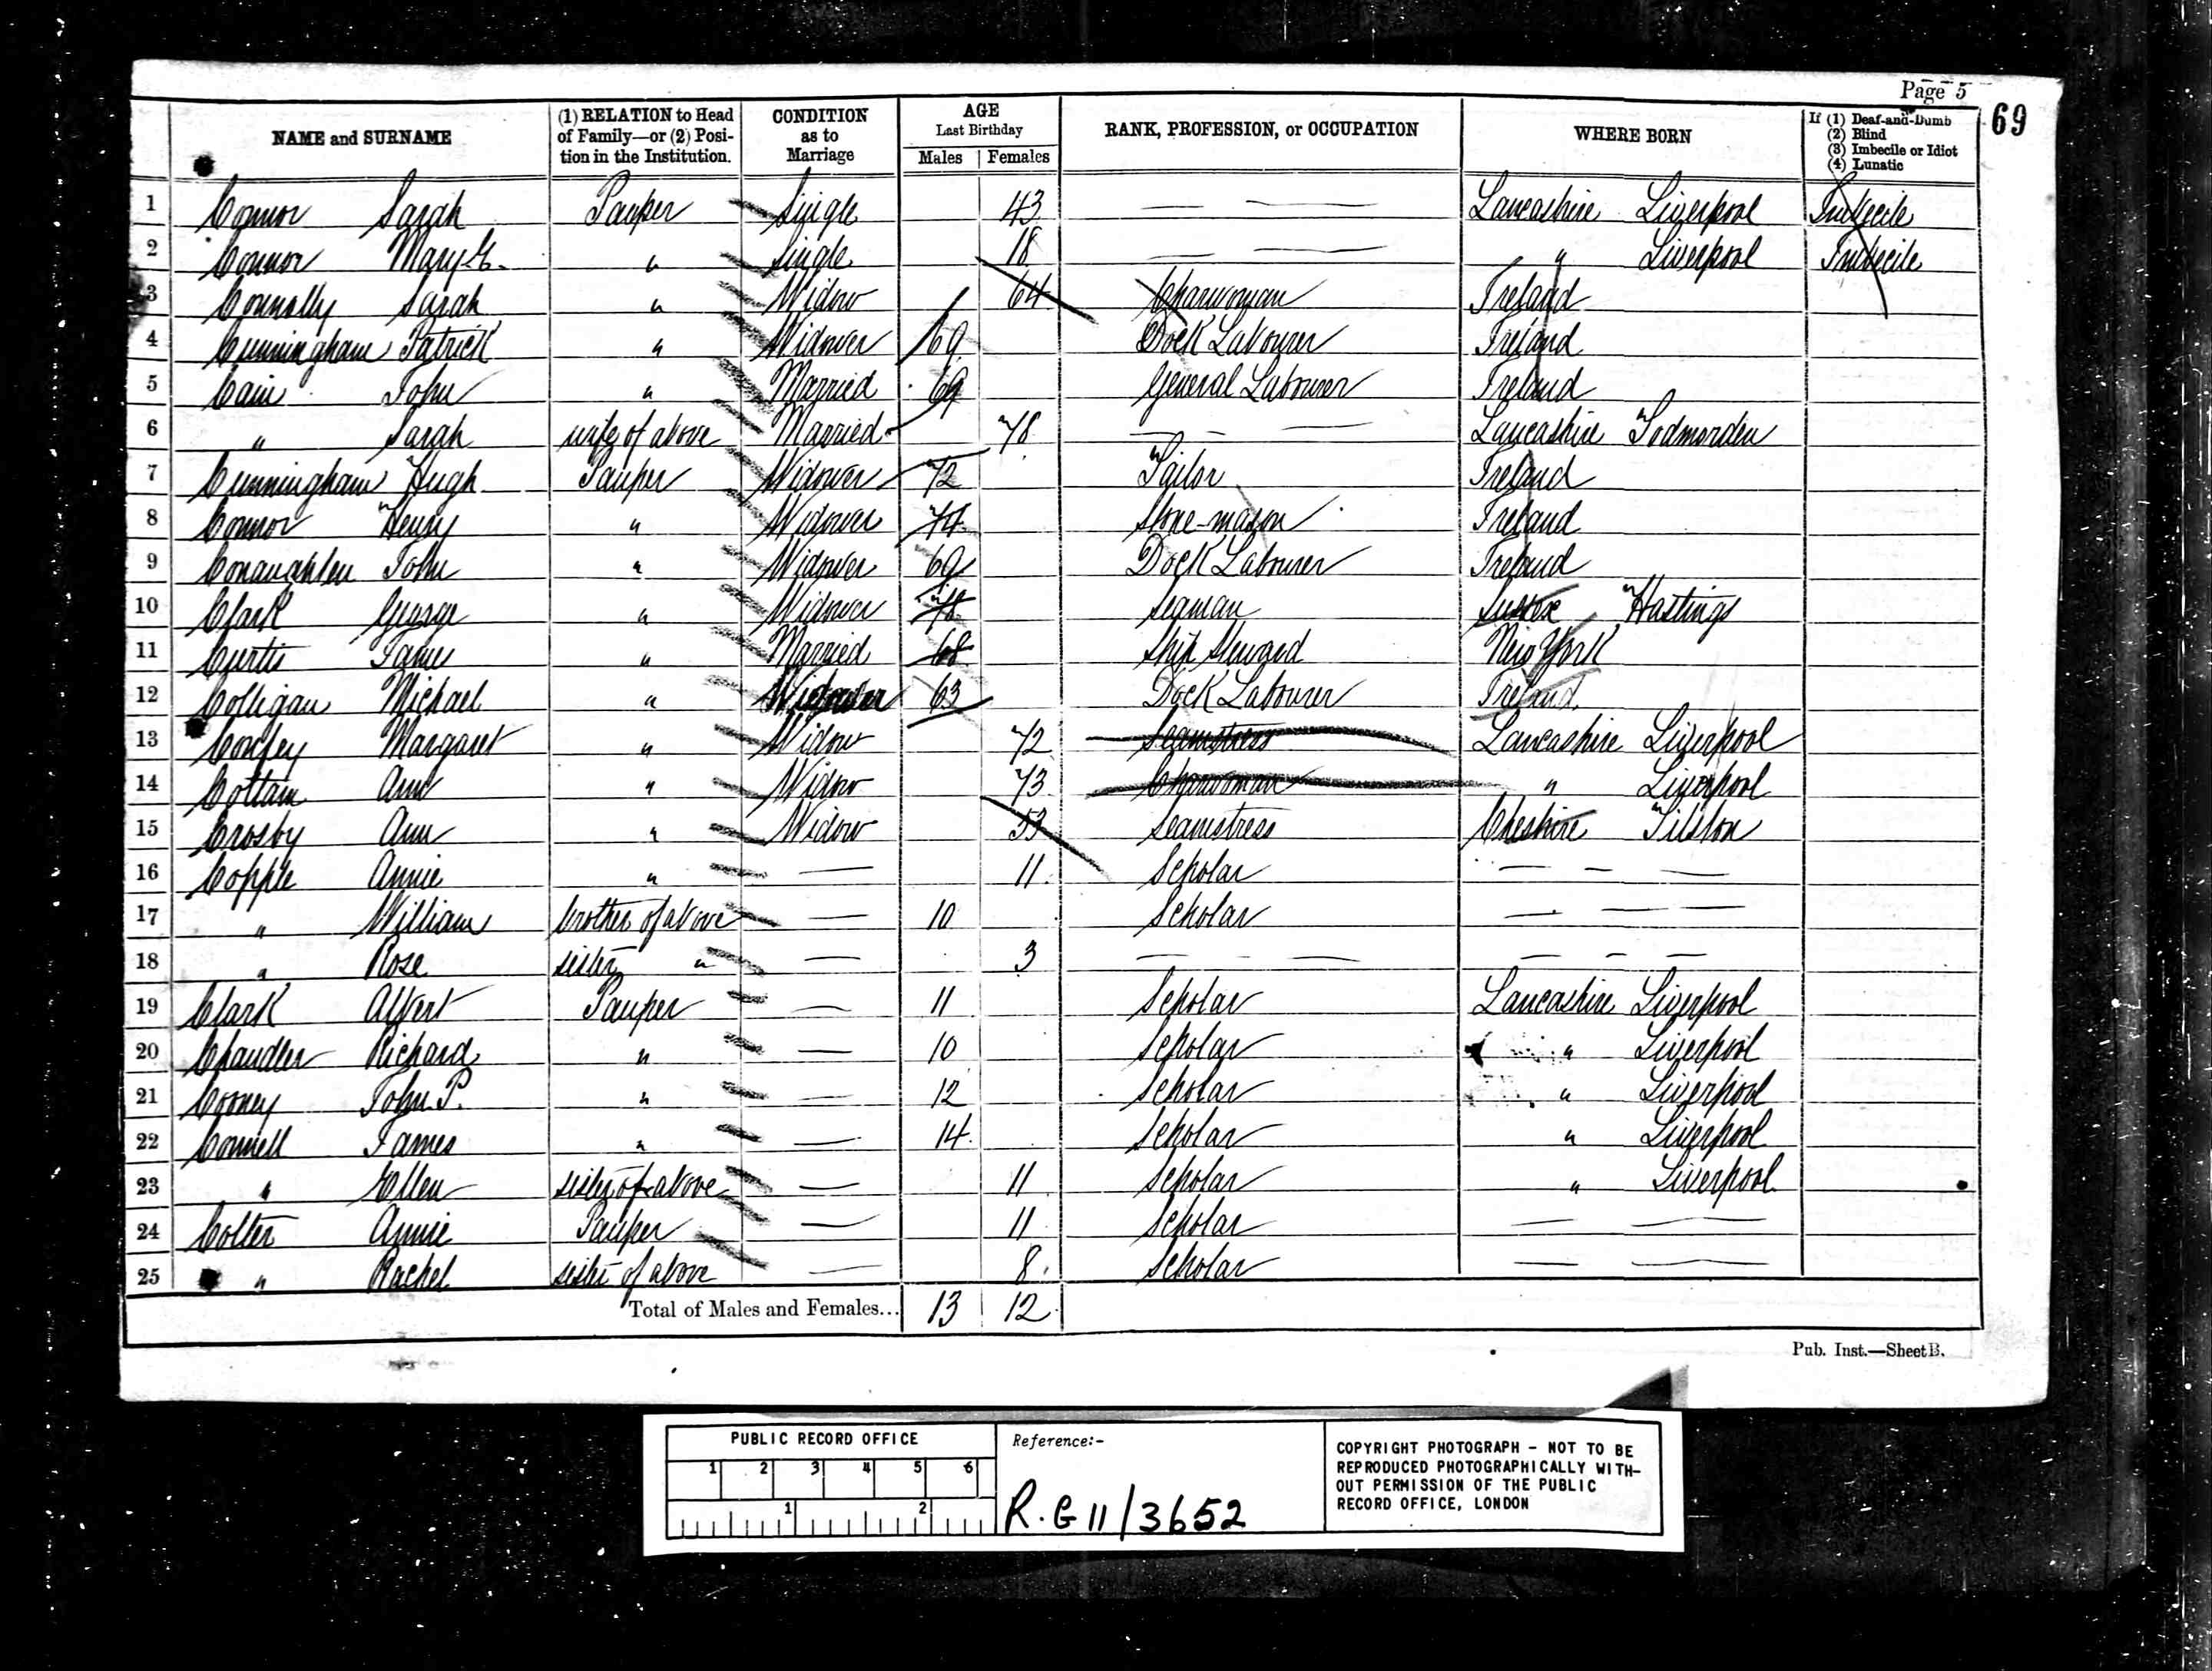 Page 5
69
NAME and SURNAME (1) RELATION to Head of Family—or (2) Position in the Institution. CONDITION as to Marriage AGE Last Birthday Males Females RANK, PROFESSION, or OCCUPATION WHERE BORN If (1) Deaf-and-Dumb (2) Blind (3) Imbecile or Idiot (4) Lunatic
1 Connor Sarah Pauper Single 43 — — Lancashire Liverpool Imbecile
2 Connor Mary E. " Single 18 — — " Liverpool Imbecile
3 Connolly Sarah " Widow 64 Charwoman Ireland
4 Cunningham Patrick " Widower 69 Dock Labourer Ireland
5 Cain John " Married 69 General Labourer Ireland
6 " Sarah wife of above Married 78 — — — Lancashire Todmorden
7 Cunningham Hugh Pauper Widower 72 Tailor Ireland
8 Connor Henry " Widower 74 Stone-mason Ireland
9 Conaughten John " Widower 69 Dock Labourer Ireland
10 Clark George " Widower 78 Seaman Sussex Hastings
11 Curtis James " Married 68 Ship Steward New York
12 Colligan Michael " Widower 63 Dock Labourer Ireland
13 Margaret " Widow 72 Seamstress Lancashire Liverpool
14 Cottam Ann " Widow 73 Charwoman " Liverpool
15 Crosby Ann " Widow 53 Seamstress Cheshire Tilston
16 Copple Annie " — 11 Scholar — — —
17 " William brother of above — 10 Scholar — — —
18 " Rose sister " — 3 — — — — — —
19 Clark Albert Pauper — 11 Scholar Lancashire Liverpool
20 Chandler Richard " — 10 Scholar " Liverpool
21 Cooney John P. " — 12 Scholar " Liverpool
22 Connell James " — 14 Scholar " Liverpool
23 " Ellen sister of above — 11 Scholar " Liverpool
24 Colter Annie Pauper — 11 Scholar — —
25 " Rachel sister of above — 8 Scholar — —
Total of Males and Females... 13 12
Pub. Inst.—Sheet B.
PUBLIC RECORD OFFICE
1 2 3 4 5 6
1 2
Reference:-
R.G 11/3652
COPYRIGHT PHOTOGRAPH - NOT TO BE
REPRODUCED PHOTOGRAPHICALLY WITH-
OUT PERMISSION OF THE PUBLIC
RECORD OFFICE, LONDON